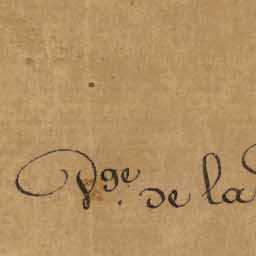 Pge. de la